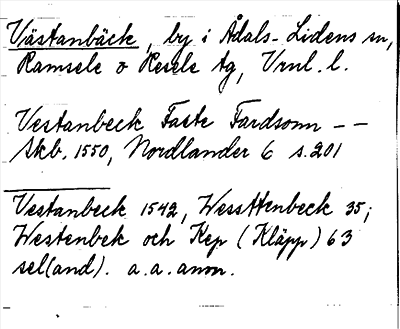 Västanbäck, by i Ådals-Lidens sn,
Ramsele o Resele tg, Vrnl. l.
Vestanbeck Faste Fardsonn – –
Skb. 1550, Nordlander 6 s. 201
Vestanbeck 1542, Wessttenbeck 35;
Westenbek och Kep (Kläpp) 63
sel(and). a.a. anon.